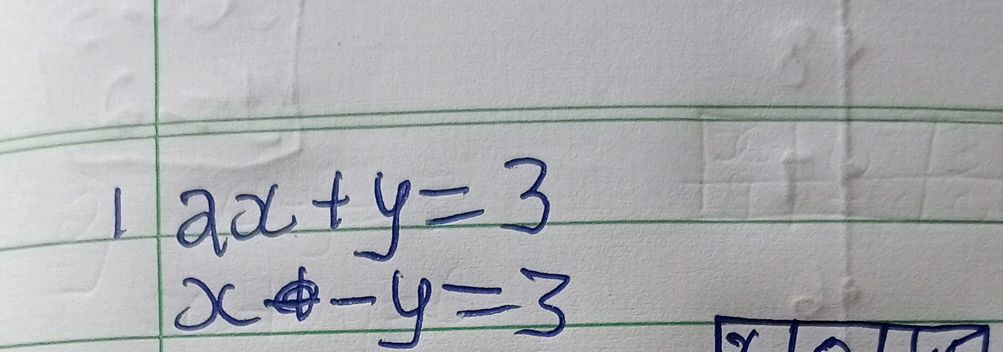 1 2x + y = 3
x - y = 3
x